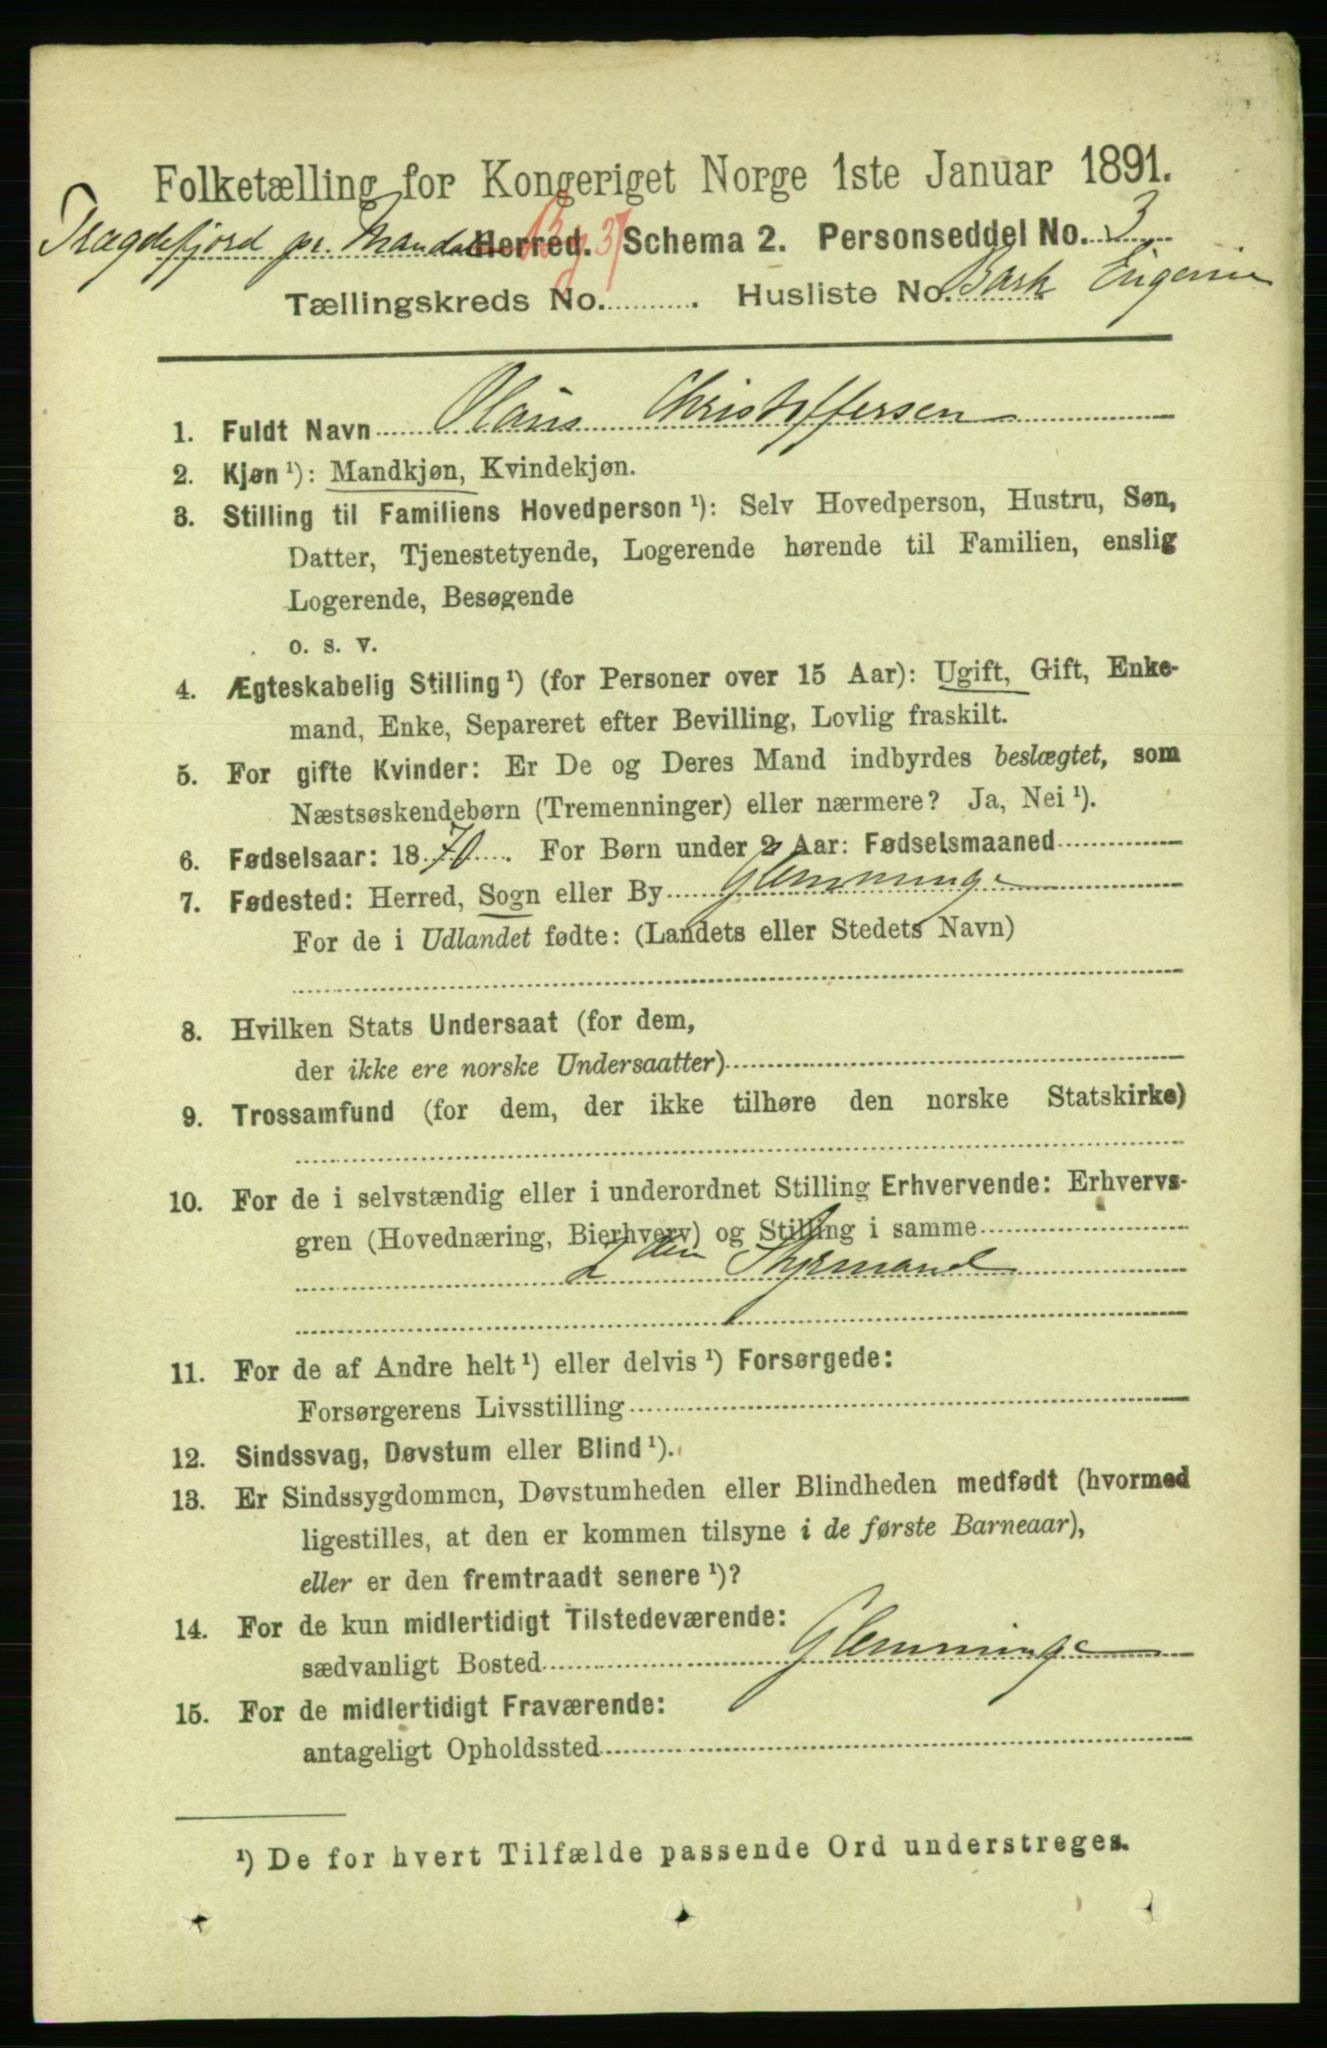 Folketælling for Kongeriget Norge 1ste Januar 1891.
Trægdefjord pr. Mandal Herred. Schema 2. Personseddel No. 3
Tællingskreds No. . Husliste No. Bark Eugenie
1. Fuldt Navn Olaus Christoffersen
2. Kjøn ¹): Mandkjøn, Kvindekjøn.
3. Stilling til Familiens Hovedperson ¹): Selv Hovedperson, Hustru, Søn,
Datter, Tjenestetyende, Logerende hørende til Familien, enslig
Logerende, Besøgende
o. s. v.
4. Ægteskabelig Stilling ¹) (for Personer over 15 Aar): Ugift, Gift, Enke-
mand, Enke, Separeret efter Bevilling, Lovlig fraskilt.
5. For gifte Kvinder: Er De og Deres Mand indbyrdes beslægtet, som
Næstsøskendebørn (Tremenninger) eller nærmere? Ja, Nei ¹).
6. Fødselsaar: 1870. For Børn under 2 Aar: Fødselsmaaned
7. Fødested: Herred, Sogn eller By Glemminge
For de i Udlandet fødte: (Landets eller Stedets Navn)
8. Hvilken Stats Undersaat (for dem,
der ikke ere norske Undersaatter)
9. Trossamfund (for dem, der ikke tilhøre den norske Statskirke)
10. For de i selvstændig eller i underordnet Stilling Erhvervende: Erhvervs-
gren (Hovednæring, Bierhverv) og Stilling i samme
2den Styrmand
11. For de af Andre helt ¹) eller delvis ¹) Forsørgede:
Forsørgerens Livsstilling
12. Sindssvag, Døvstum eller Blind ¹).
13. Er Sindssygdommen, Døvstumheden eller Blindheden medfødt (hvormed
ligestilles, at den er kommen tilsyne i de første Barneaar),
eller er den fremtraadt senere ¹)?
14. For de kun midlertidigt Tilstedeværende:
sædvanligt Bosted Glemminge
15. For de midlertidigt Fraværende:
antageligt Opholdssted
¹) De for hvert Tilfælde passende Ord understreges.